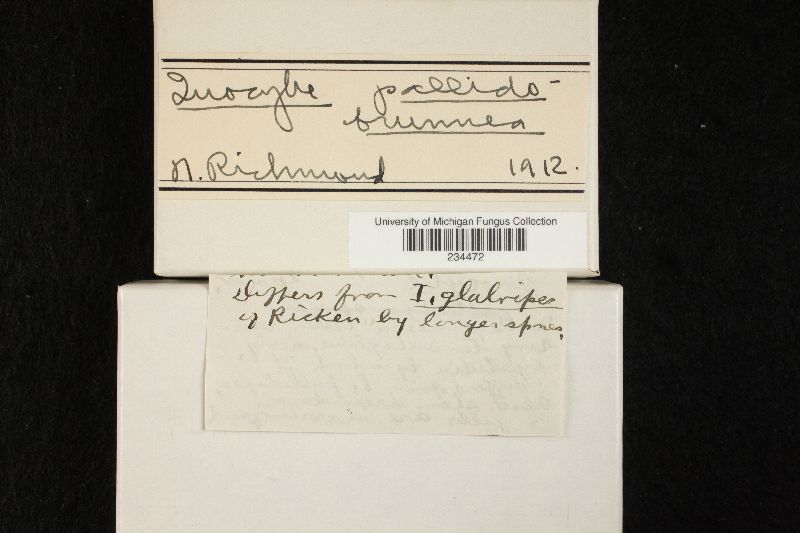 Inocybe pallido-
brunnea
N. Richmond 1912.
University of Michigan Fungus Collection
234472
Differs from I. glabripes
of Ricken by longer spores.